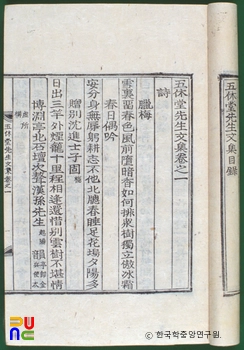 五休堂先生文集目錄
五休堂先生文集卷之一
詩
臘梅
雪裏留春色風前暗杏如何排衆樹獨立傲冰霜
春日偶吟
安分身無辱躬耕志不他北牎春睡足花塢夕陽多
贈別沈進士子固
日出三竿外煙籠十里程相逢還惜別雲樹不堪情
博淵亭北石壇次聱漢孫先生韻
五休堂先生文集卷之一
© 한국학중앙연구원.